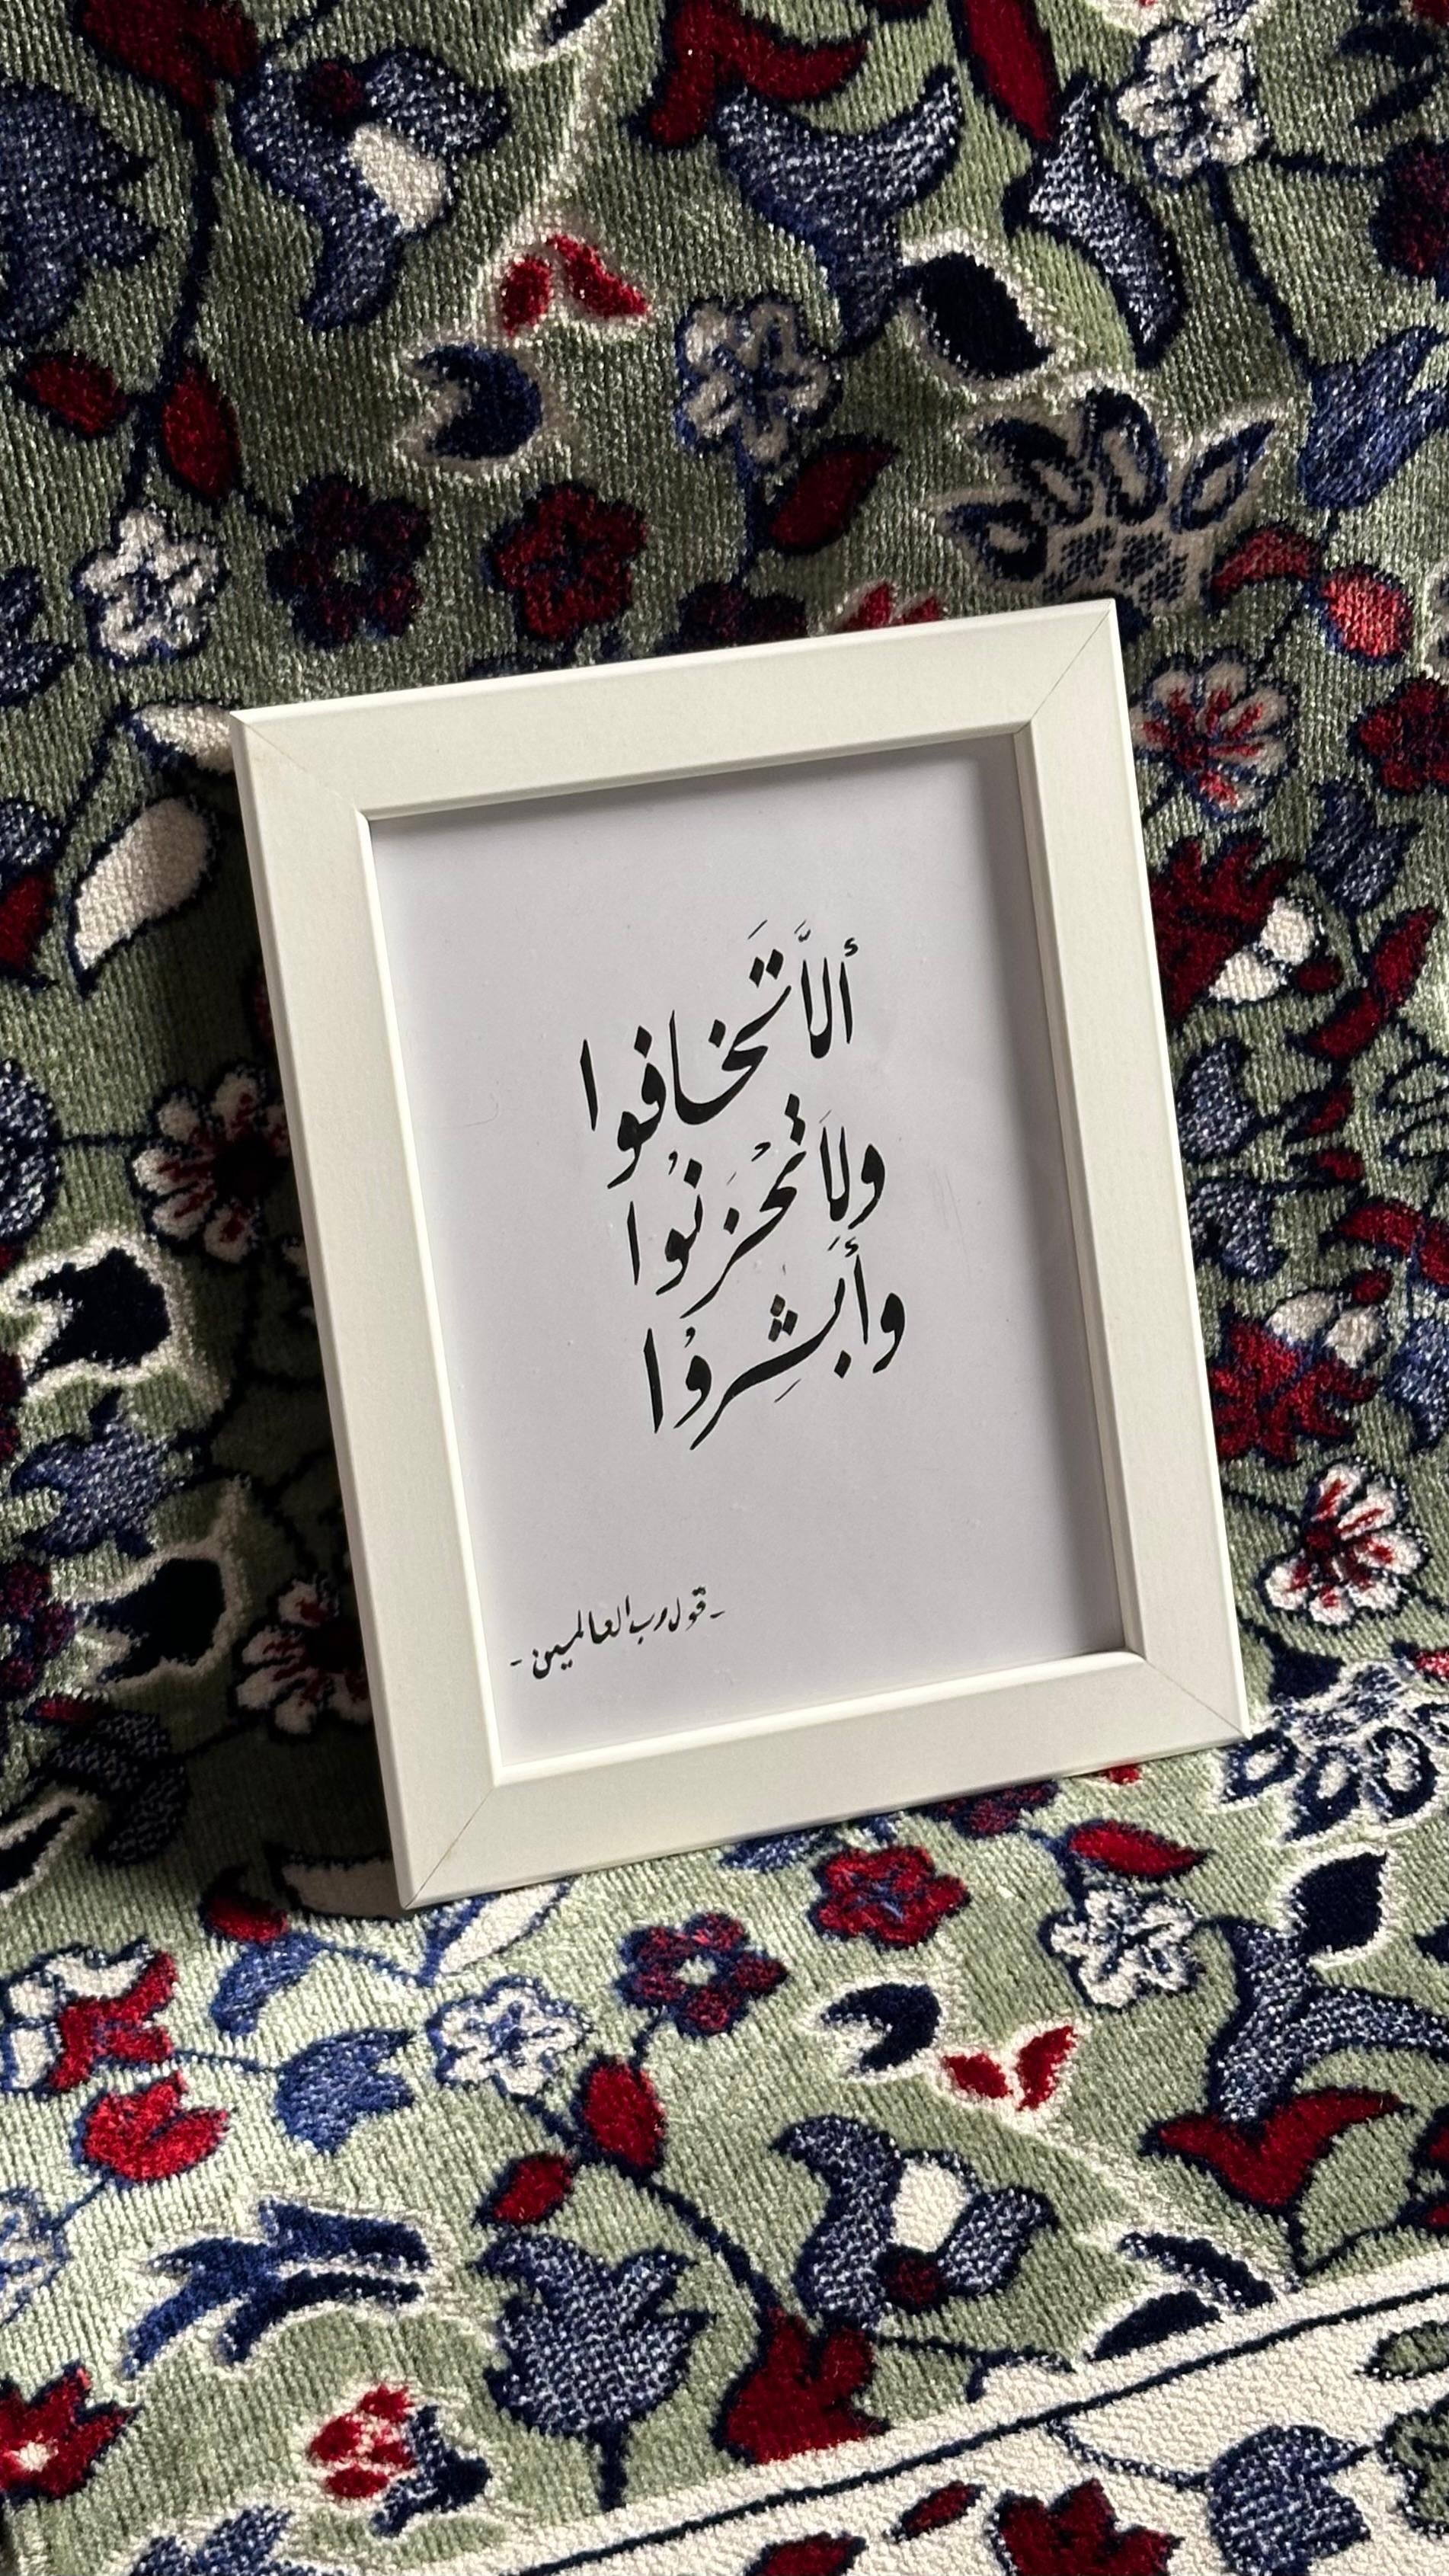 ألَّا تَخافوا
ولَا تحْزَنُوا
وَأبشِرُوا
- قول رب العالمين -